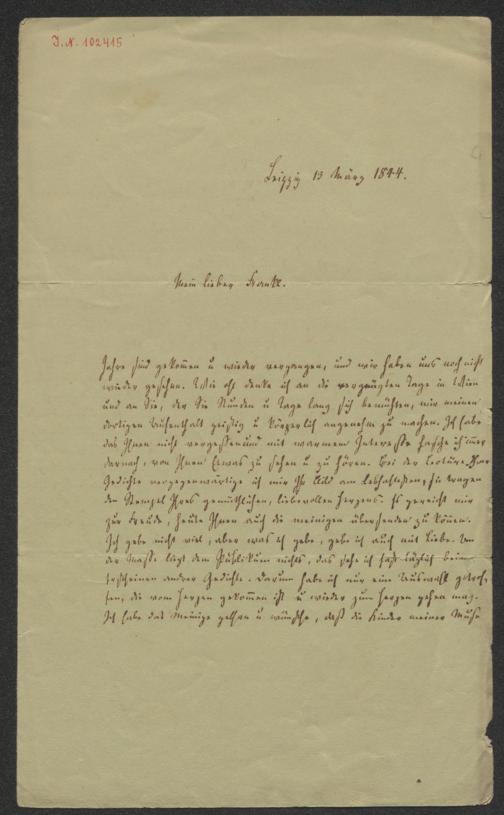 I. N. 102415
Leipzig 13 März 1844.
Mein lieber Frankl.
Jahre sind gekom̅en u wieder vergangen, und wir haben uns noch nicht
wieder gesehen. Wie oft denke ich an die vergnügten Tage in Wien
und an Sie, der Sie Stunden u Tage lang sich bemühten, mir meinen
dortigen Aufenthalt geistig u körperlich angenehm zu machen. Ich habe
das Ihnen nicht vergessen und mit warmem Interesse hasche ich im̅er
darnach, von Ihnen Etwas zu sehen u zu hören. Bei der Lectüre Ihrer
Gedichte vergegenwärtige ich mir Ihr Bild am Lebhaftesten, sie tragen
den Stempel Ihres gemüthlichen, liebevollen Herzens. Es gereicht mir
zur Freude, heute Ihnen auch die meinigen übersenden zu kön̅en.
Ich gebe nicht viel, aber was ich gebe, gebe ich auch mit Liebe. An
der Masse liegt dem Publikum nichts, das sehe ich fast täglich beim
Erscheinen andrer Gedichte. Darum habe ich nur eine Auswahl getrof-
fen, die vom Herzen gekom̅en ist u wieder zum Herzen gehen mag.
Ich habe das Meinige gethan u wünsche, daß die Kinder meiner Muse